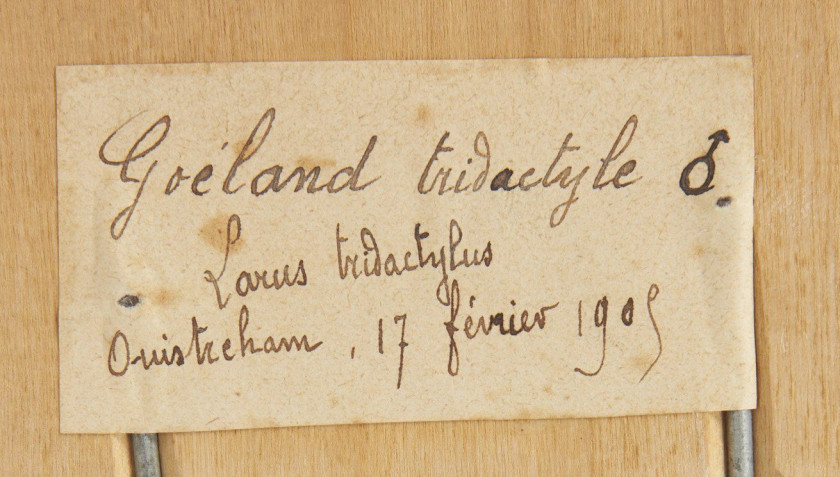 Goéland tridactyle ♂
Larus tridactylus
Ouistreham, 17 février 1905